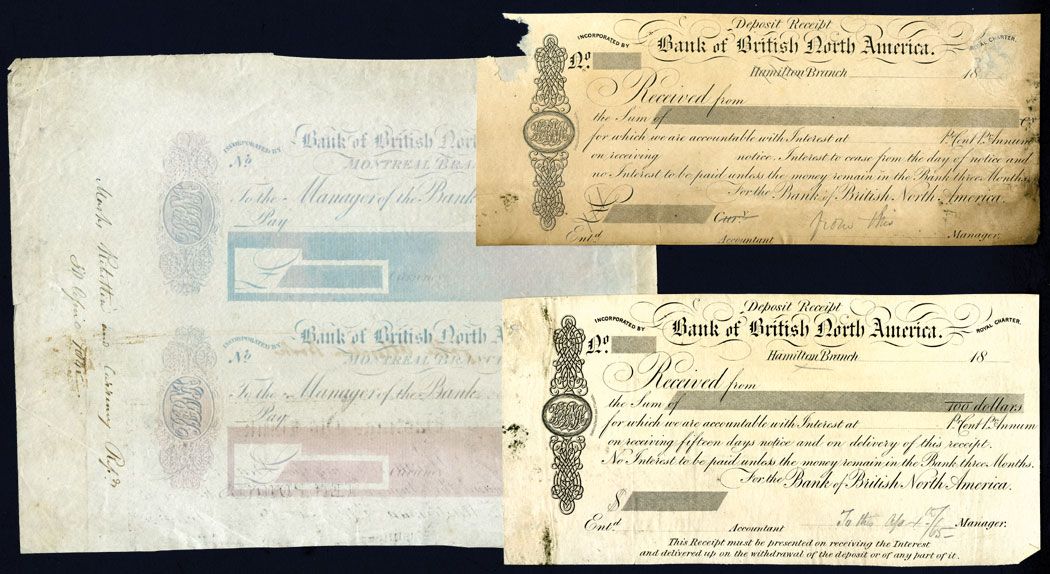 Deposit Receipt
INCORPORATED BY
Bank of British North America.
ROYAL CHARTER.
No
Hamilton Branch 18
Received from
the Sum of Cy
for which we are accountable with Interest at P. Cent P. Annum
on receiving notice. Interest to cease from the day of notice and
no Interest to be paid unless the money remain in the Bank three Months.
For the Bank of British North America.
£ Cury
from this
Entd Accountant Manager.
Deposit Receipt
INCORPORATED BY
Bank of British North America.
ROYAL CHARTER.
No
Hamilton Branch 18
Received from
the Sum of 100 dollars
for which we are accountable with Interest at P. Cent P. Annum
on receiving fifteen days notice and on delivery of this receipt.
No Interest to be paid unless the money remain in the Bank three Months.
For the Bank of British North America.
$
To this
Entd Accountant Manager.
This Receipt must be presented on receiving the Interest
and delivered up on the withdrawal of the deposit or of any part of it.
INCORPORATED BY
Bank of British North
No
MONTREAL BRAN
To the Manager of the Bank
Pay
£
Currency
INCORPORATED BY
Bank of British North A
No
MONTREAL BRANC
To the Manager of the Bank
Pay
£
Currency
and